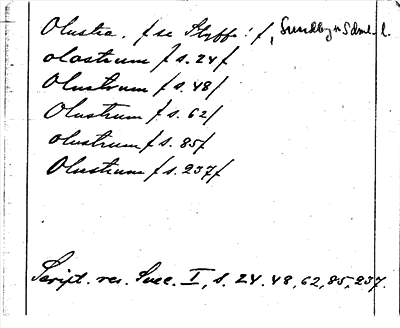 Olustra. f se Styffe: f, Sundby n Sdml. l.
olostrum f s. 24 f
Olustrum f s. 48 f
Olustrum f s. 62 f
olustrum f s. 85 f
Olustrum f s. 237 f
Script. rer. Suec. I, s. 24. 48, 62, 85, 237.